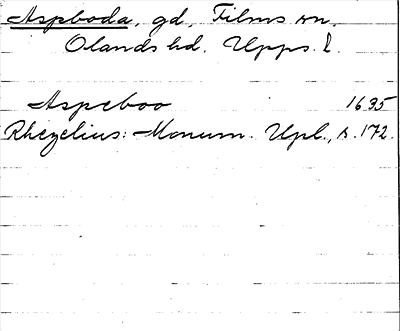 Aspboda, gd, Films sn.
Olands hd. Upps. l.
Aspeboo 1635
Rhezelius: Monum. Upl., s. 172.